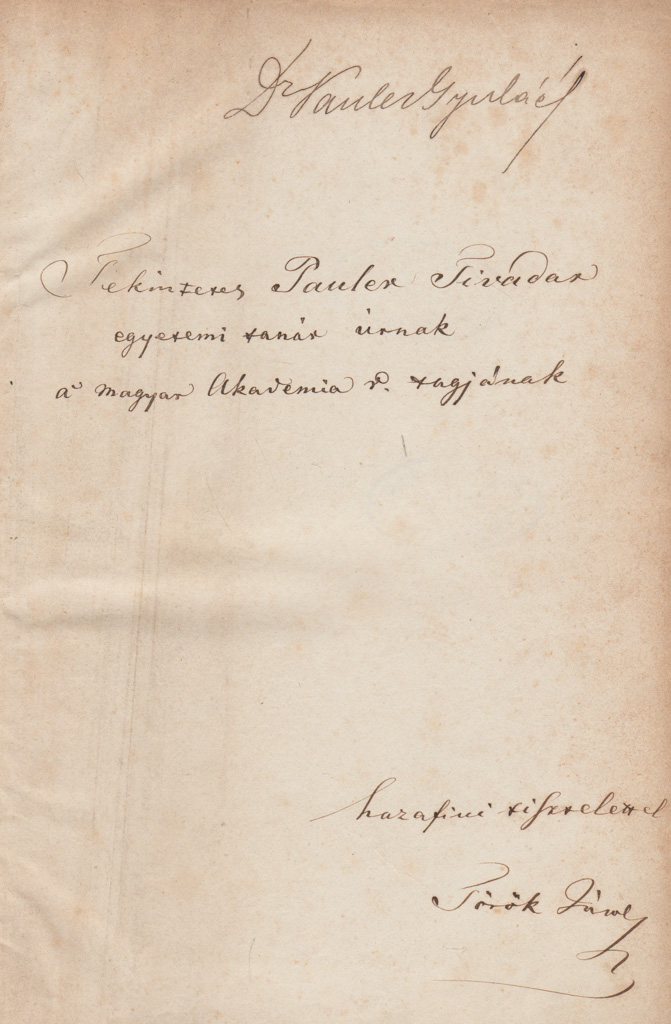 Dr Pauler Gyuláé
Tekintetes Pauler Tivadar
egyetemi tanár úrnak
a' magyar Akadémia r. tagjának
hazafiui tisztelettel
Török János